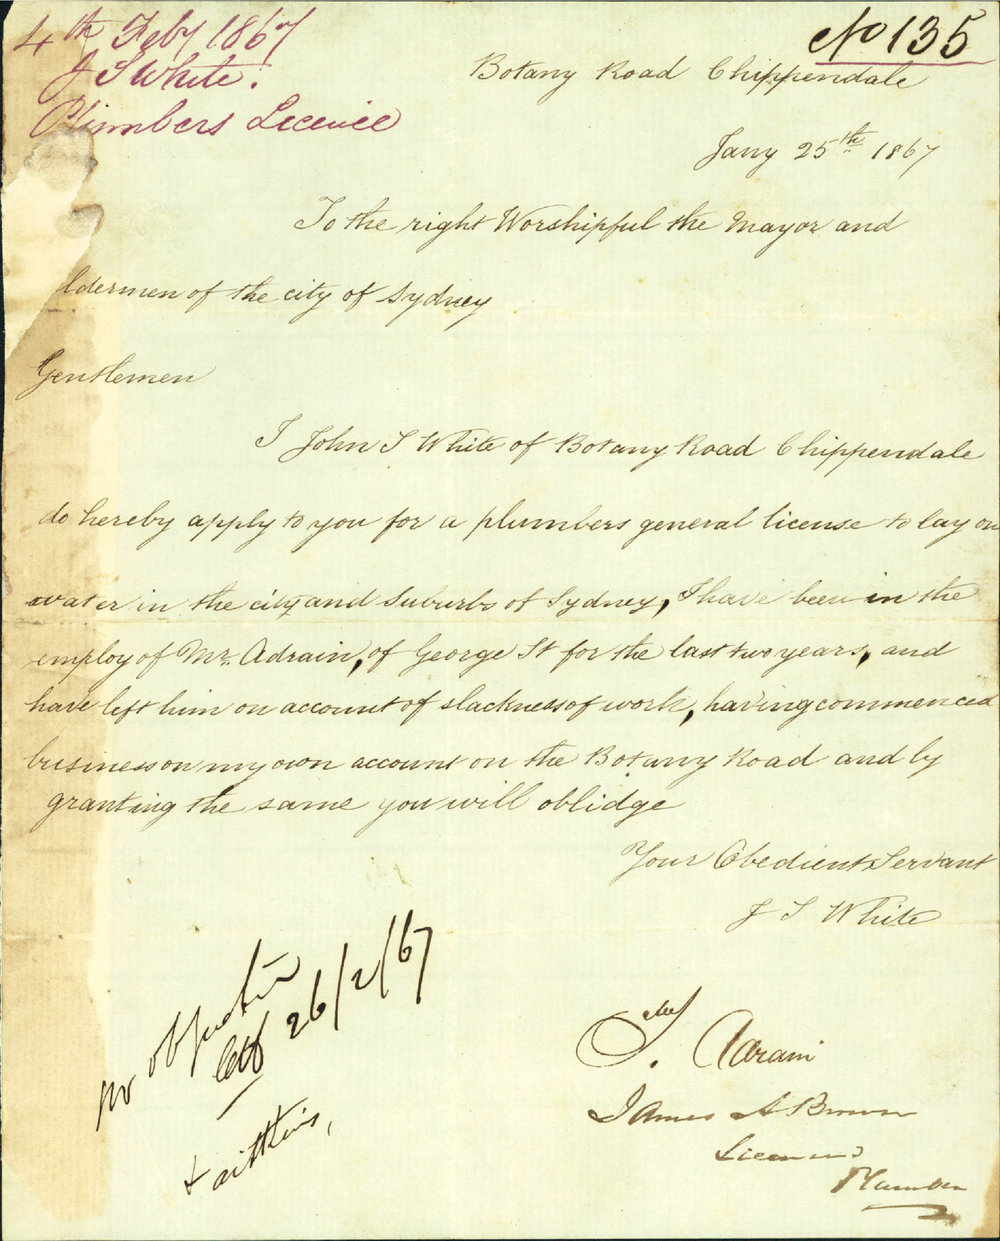 4th Feby 1867
J S White.
Plumbers Licence
No 135
Botany Road Chippendale
Jany 25th 1867
To the right Worshipful the Mayor and
ldermen of the city of Sydney
Gentlemen
I John S White of Botany Road Chippendale
do hereby apply to you for a plumbers general license to lay on
water in the city and Suburbs of Sydney, I have been in the
employ of Mr. Adrain, of George St for the last two years, and
have left him on account of slackness of work, having commenced
business on my own account on the Botany Road and by
granting the same you will oblidge
Your Obedient Servant
J S White
no objection
26/2/67
James A Brown
Licensed
Plumber